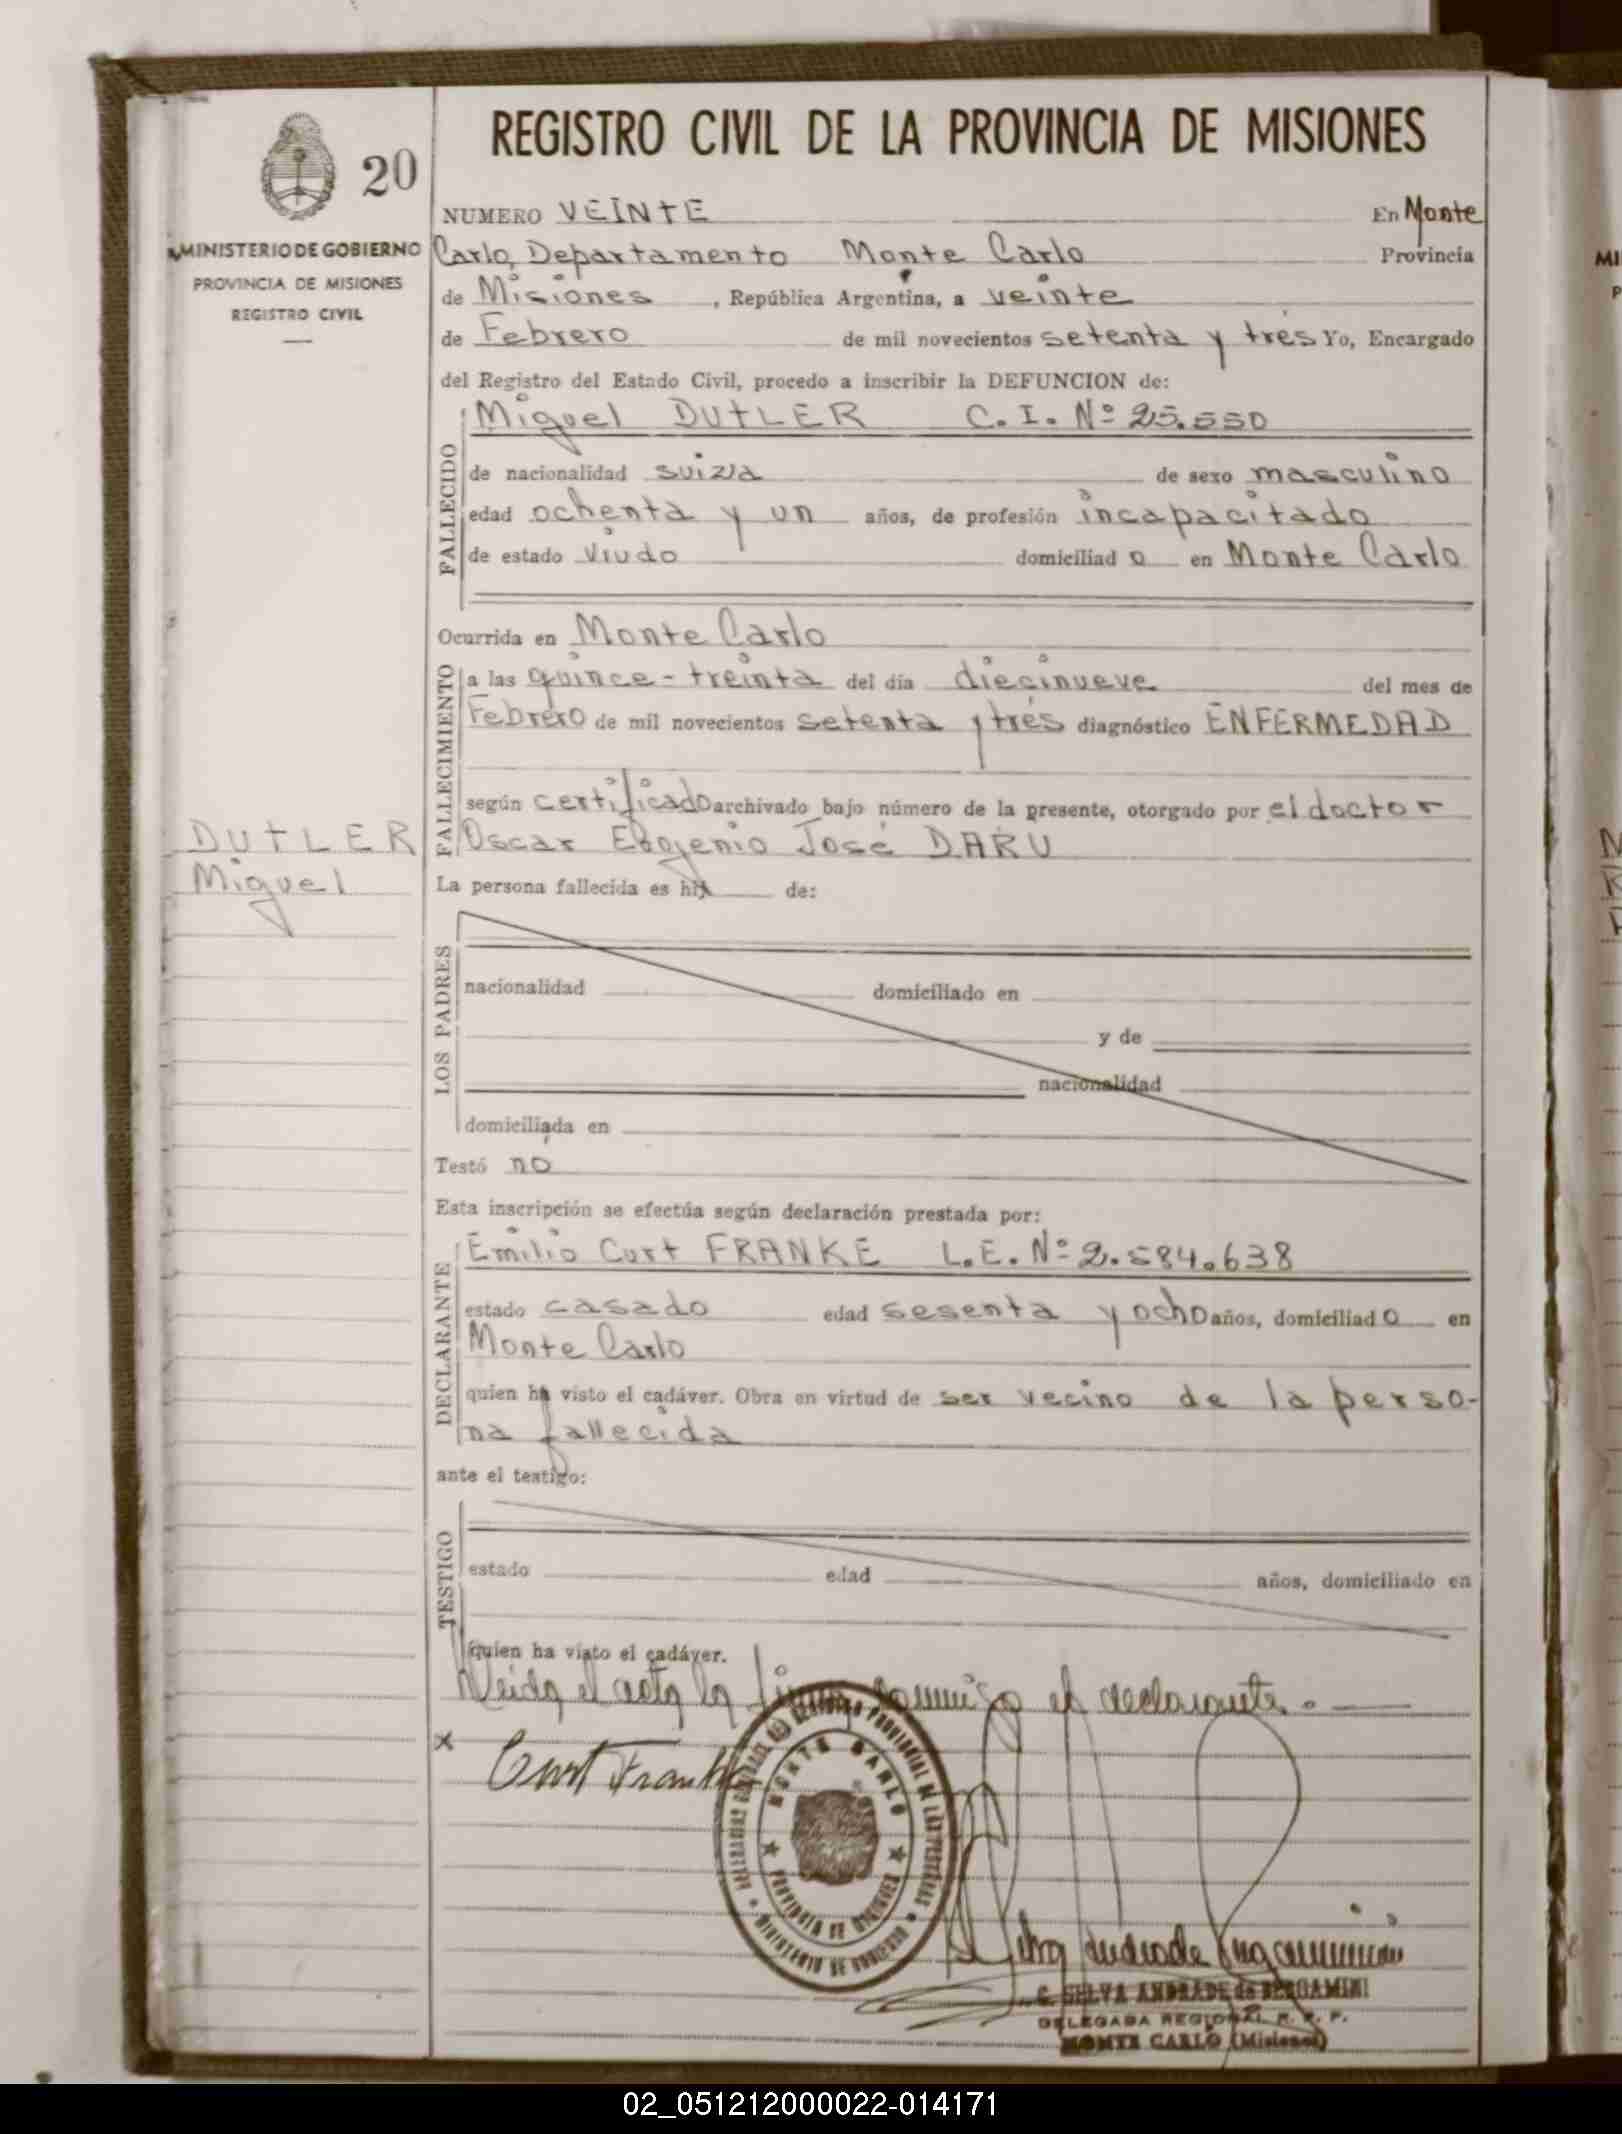 REGISTRO CIVIL DE LA PROVINCIA DE MISIONES
20
MINISTERIO DE GOBIERNO
PROVINCIA DE MISIONES
REGISTRO CIVIL
NUMERO VEINTE En Monte
Carlo, Departamento Monte Carlo Provincia
de Misiones , República Argentina, a veinte
de Febrero de mil novecientos setenta y tres Yo, Encargado
del Registro del Estado Civil, procedo a inscribir la DEFUNCION de:
Miguel DUTLER C. I. Nº 25.550
FALLECIDO
de nacionalidad suiza de sexo masculino
edad ochenta y un años, de profesión incapacitado
de estado viudo domiciliad o en Monte Carlo
Ocurrida en Monte Carlo
FALLECIMIENTO
a las quince-treinta del día diecinueve del mes de
Febrero de mil novecientos setenta y tres diagnóstico ENFERMEDAD
según certificado archivado bajo número de la presente, otorgado por el doctor
Oscar Eugenio José DARU
DUTLER
Miguel
La persona fallecida es hij de:
LOS PADRES
nacionalidad domiciliado en
y de
nacionalidad
domiciliada en
Testó no
Esta inscripción se efectúa según declaración prestada por:
DECLARANTE
Emilio Curt FRANKE L.E. Nº 2.584.638
estado casado edad sesenta y ocho años, domiciliad o en
Monte Carlo
quien ha visto el cadáver. Obra en virtud de ser vecino de la perso-
na fallecida
ante el testigo:
TESTIGO
estado edad años, domiciliado en
quien ha visto el cadáver.
Leida el acta la firma conmigo el declarante.
x Curt Franke
MONTE CARLO
PROVINCIA DE MISIONES
MINISTERIO DE GOBIERNO
C. SELVA ANDRADE de BERGAMINI
DELEGADA REGIONAL R. P. P.
MONTE CARLO (Misiones)
02_051212000022-014171